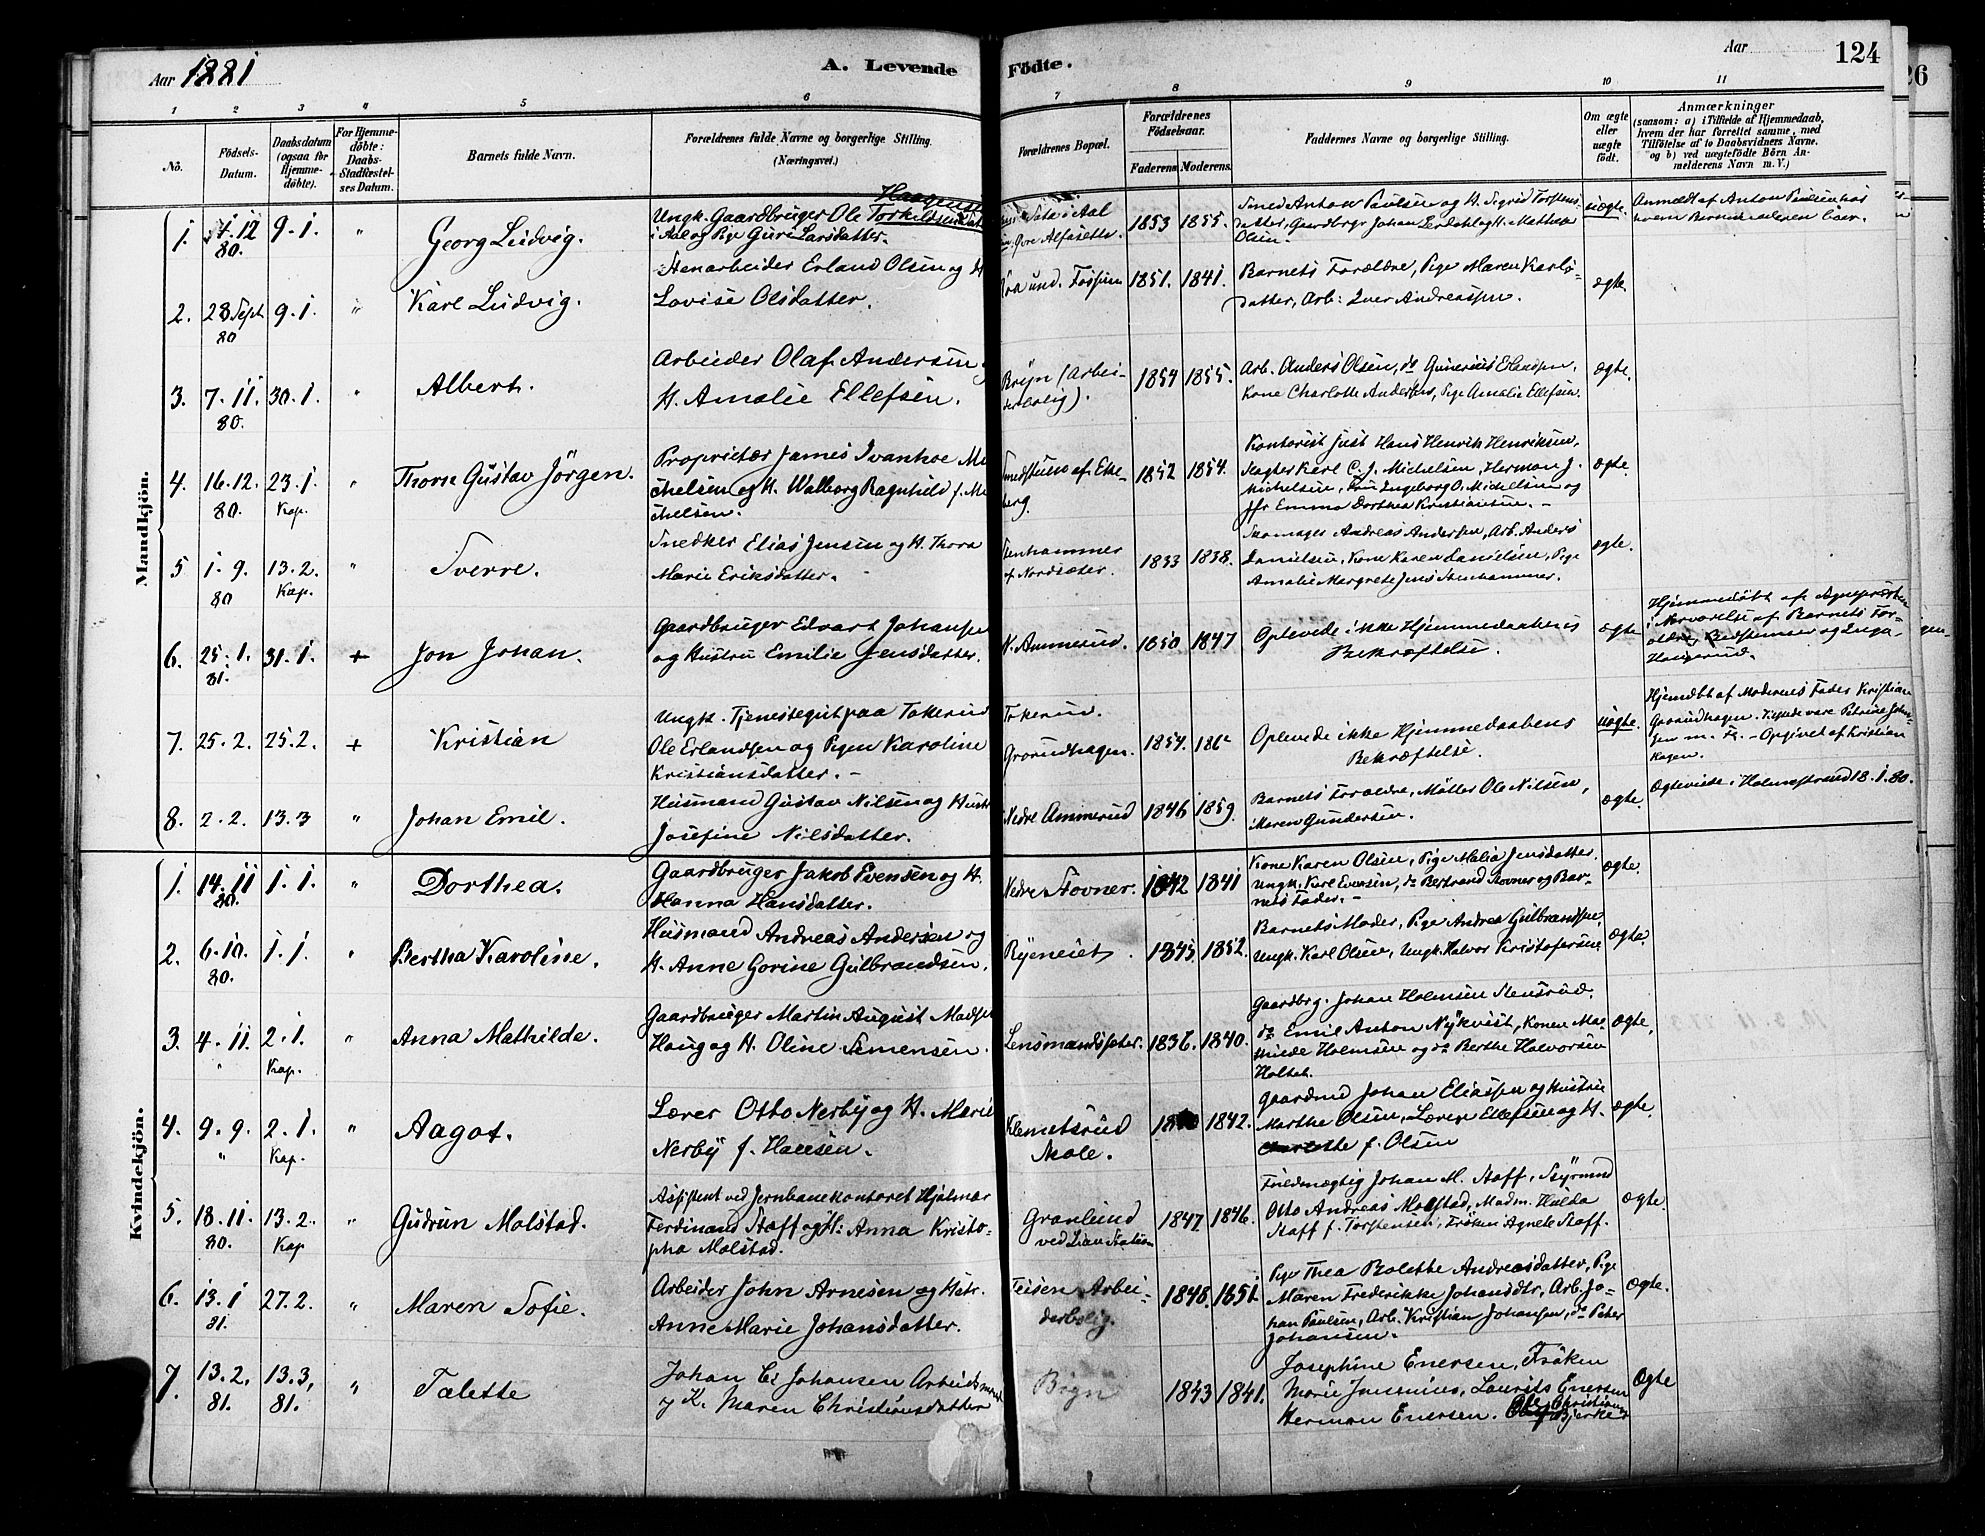 Aar 1881
A. Levende Födte.
Aar
124
1 2 3 " 5 6 7 8 9 10 11
No.
Födsels-Datum.
Daabsdatum (ogsaa for Hjemme-döbte).
For Hjemme-döbte: Daabs-Stadfæstel-ses Datum.
Barnets fulde Navn.
Forældrenes fulde Navne og borgerlige Stilling.
(Næringsvei.)
Forældrenes Bopæl.
Forældrenes Födselsaar.
Faderens Moderens.
Faddernes Navne og borgerlige Stilling.
Om ægte eller uægte födt.
Anmærkninger
(saasom: a) i Tilfælde af Hjemmedaab,
hvem der har forrettet samme, med
Tilföielse af to Daabsvidners Navne.
og b) ved uægtefödte Börn An-
melderens Navn m. V.)
Mandkjön.
1. 12 80. 9.1. " Georg Ludvig.
Ungk. Gaardbruger Ole Torkildsen
i Aal og Pige Guri Larsdatter.
1853 1855.
Smed Anton Paulsen og H. Sigrid
Olsen.
uægte.
Anmeldt af Anton Paulsen hos
hvem Barnemoderen boer.
2. 28 Sept 80 9.1. " Karl Ludvig.
Stenarbeider Erland Olsen og H
Lovise Olsdatter.
1851. 1841.
Barnets Forældre, Pige Maren Karls-
datter, Arb: Iver Andreassen.
ægte.
3. 7.11. 80. 30.1. " Albert.
Arbeider Olaf Andersen
H. Amalie Ellefsen.
Bryn (Arbei-
derbolig).
1854 1855.
Arb. Anders Olsen, do Gunerius Erlandsen,
Kone Charlotte Andersen, Pige Amalie Ellefsen.
ægte.
4. 16.12. 80 23.1. Kap. " Thorn Gustav Jörgen.
Proprietær James Ivanhoe Mi
chelsen og H. Walborg Ragnhild f. Mi
chelsen.
af Eke-
berg.
1852 1854.
Kontorist Just Hans Henrik Henriksen,
Karl C. J. Michelsen, Herman J.
Michelsen, Fru Ingeborg O. Michelsen og
Jfr Emma Dorthea Kristiansen. -
ægte.
5 1.9. 80 13.2. Kap. " Sverre.
Snedker Elias Jensen og H. Thora
Marie Eriksdatter. -
Stenhammer
af Nordsæter.
1833 1838.
Skomager Andreas Andersen, Arb. Anders
Danielsen, Kone Karen Danielsen, Pige
Amalie Margrete Jens Stenhammer.
ægte.
6. 25.1. 81. 31.1. + Jon Johan.
Gaardbruger Edvart Johansen
og Hustru Emilie Jensdatter.
N. Ammerud.
1850 1847
Oplevede ikke Hjemmedaabens
Bekræftelse.
ægte
Hjemmedöbt af Sognepræsten
i Nærværelse af Barnets For-
ældre, og Inga
Haugerud.
7. 25.2. 25.2. + Kristian
Ungk. Tjenestegut paa Tokerud
Ole Erlandsen og Pigen Karoline
Kristiansdatter. -
Tokerud.
Grorudhagen.
1854. 186
Oplevede ikke Hjemmedaabens
Bekræftelse.
uægte.
Hjemdbt af Moderens Fader Kristian
Grorudhagen. Petrine Johan-
sen m. Fl. - Opgivet af Kristian
Hagen.
8. 2.2. 13.3 " Johan Emil.
Husmand Gustav Nilsen og Hustr
Josefine Nilsdatter.
Nedre Ammerud
1846 1859.
Barnets Forældre, Möller Ole Nilsen,
Maren Gundersen.
ægte.
Ægteviede i Holmestrand 18.1.80.
Kvindekjön.
1. 14.11 80. 1.1. " Dorthea.
Gaardbruger Jakob Evensen og H.
Hanna Hansdatter.
Nedre Stovner.
1842 1841
Kone Karen Olsen, Pige Malia Jensdatter
Ungk. Karl Evensen, do Bertrand Stovner og Bar-
nets Fader. -
ægte.
2. 6.10. 80. 1.1. " Bertha Karoline.
Husmand Andreas Andersen og
H. Anne Gorine Gulbrandsen.
Ryeneiet.
1845. 1852.
Barnets Moder, Pige Andrea Gulbrandsen,
Ungk. Karl Olsen, Ungk. Halvor Kristofersen
ægte.
3. 4.11. " 2.1. Kap. " Anna Mathilde.
Gaardbruger Martin August Madsen
Haug og H. Oline Simensen.
Lensmandssæter.
1836. 1840.
Gaardbrg. Johan Holmsen Stensrud.
do Emil Anton Nykvist, Konen Ma-
thilde Holmsen og do Berthe Halvorsen
Holtet.
ægte.
4. 9.9. " 2.1. Kap. " Aagot.
Lærer Otto Nerby og H. Marie
Nerby f. Hansen.
Klemetsrud
Skole.
1842.
Gaardmd Johan Eliassen og Hustru
Marthe Olsen, Lærer Ellefsen og H.
f. Olsen
ægte.
5. 18.11. 80. 13.2. Kap " Gudrun Molstad.
Assistent ved Jernbanekontoret Hjalmar
Ferdinand Staff og H: Anna Kristo-
pha Molstad.
Granlund
ved Lian Station
1847. 1846.
Fuldmægtig Johan M. Staff, Styrmnd
Otto Andreas Molstad, Madm. Hulda
Staff f. Torstensen, Fröken Agnete Staff.
ægte
6. 13.1 81. 27.2. " Maren Sofie.
Arbeider John Arnesen og Hstr.
Anne Marie Johansdatter.
Teisen Arbei-
derbolig.
1848. 1851.
Pige Thea Bolette Andreasdatter, Pige
Maren Frederikke Johansdtr, Arb. Jo-
han Paulsen, Arb. Kristian Johansen, do Peter
Johansen.
Ægte.
7. 13.2. 81. 13.3, 81. " Talette
Johan C. Johansen Arbeidsmand
og K. Maren Christiansdatter
Bryn
1843 1841.
Josephine Enersen, Fröken
Marie, Laurits Enersen
Herman Enersen. Ole Christian
Bjerke
Ægte